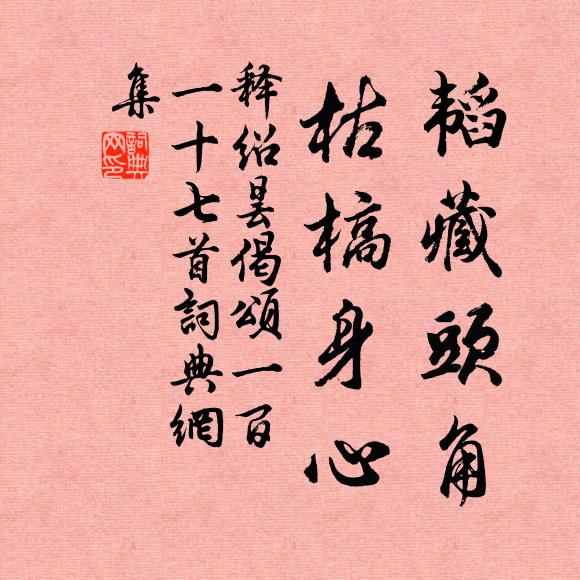 韬藏頭角
枯槁身心
释绍昙偈頌一百
一十七首詞典網
集
詞典
网印